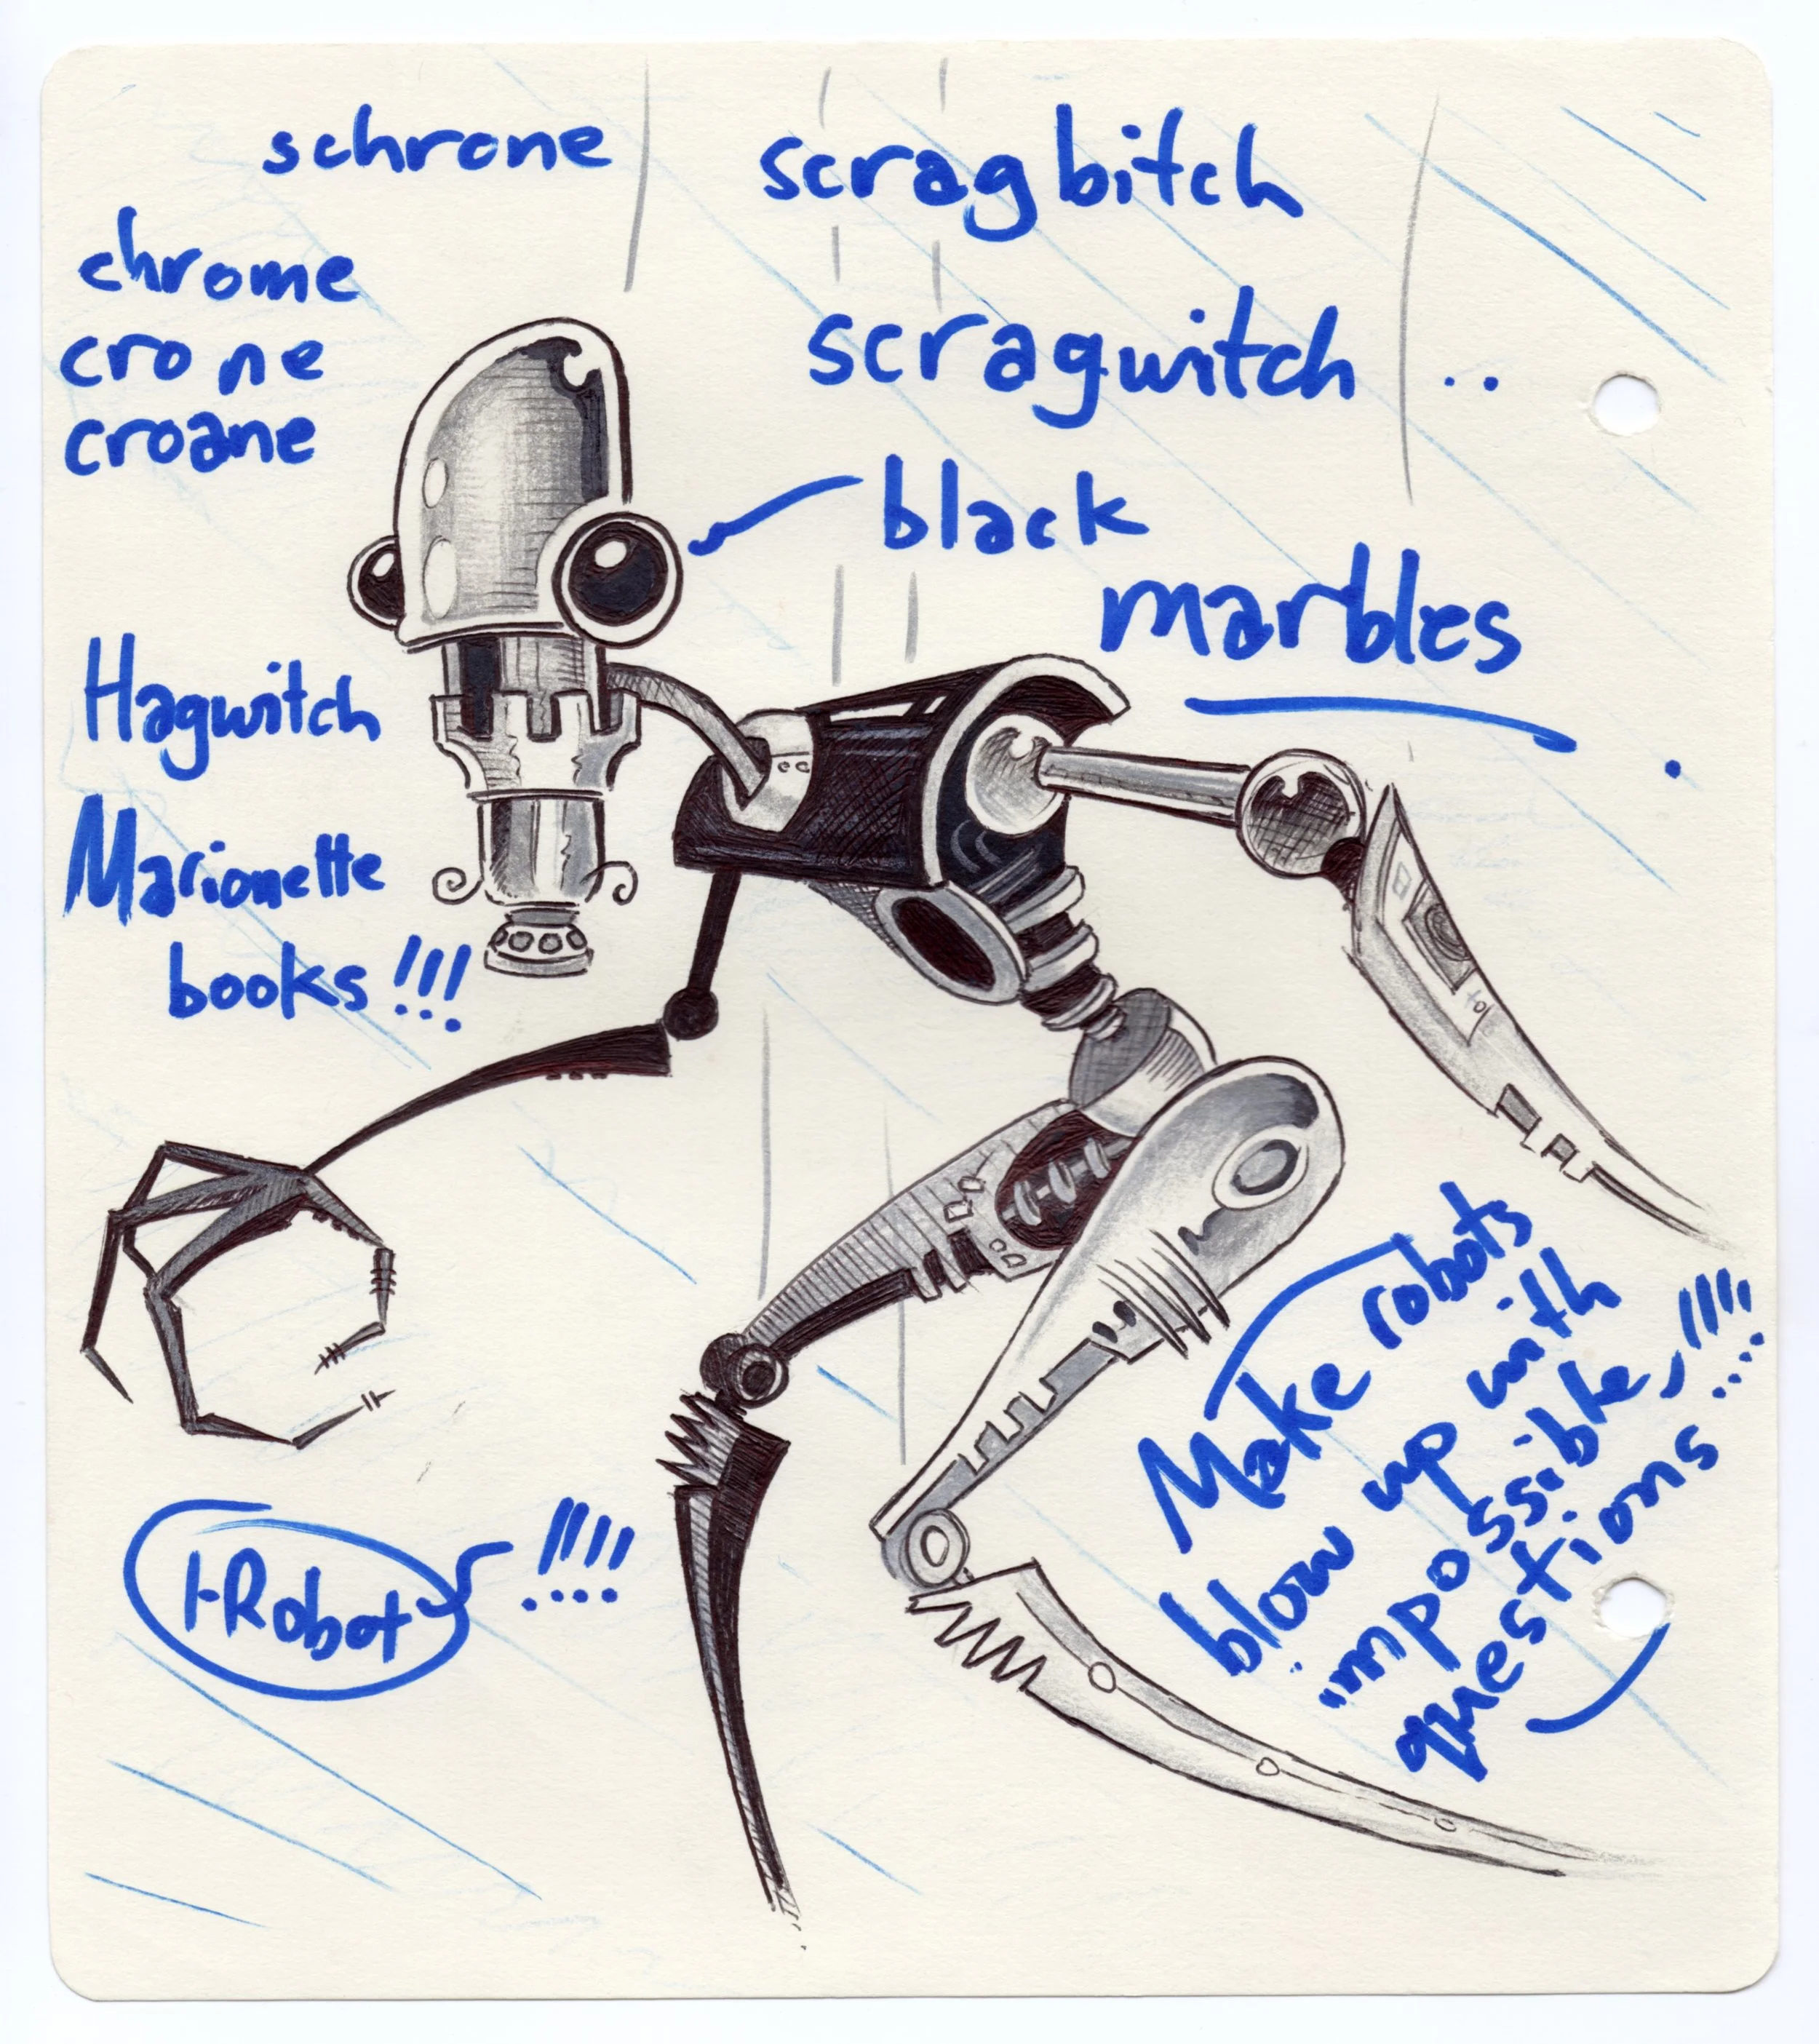 schrone
scragbitch
chrome
crone
croane
scragwitch ..
black
marbles
Hagwitch
Marionette
books !!!
Make robots
blow up with
impossible !!!!
questions
I-Robot !!!!